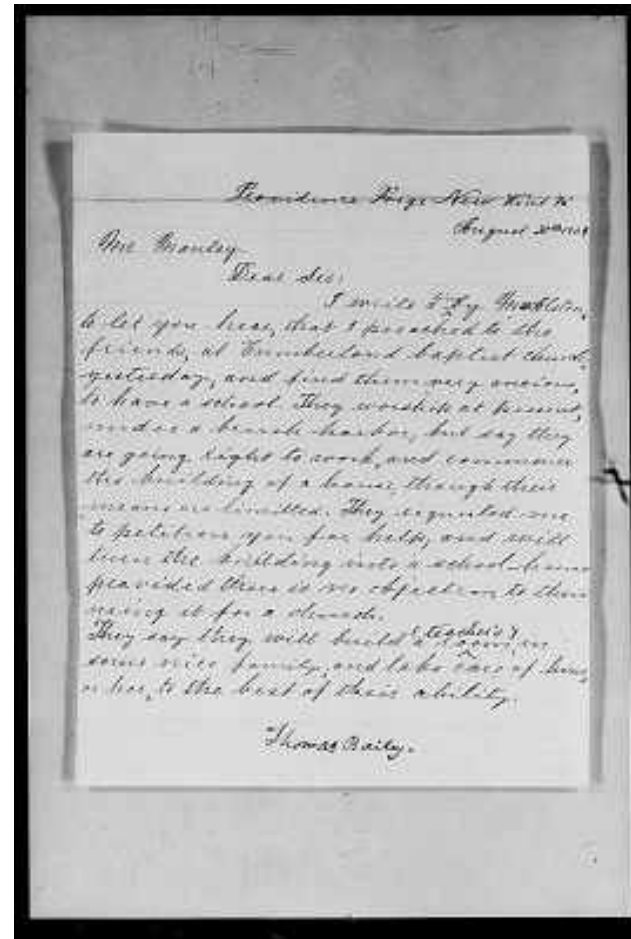 Providence Forge New Kent Va
August 30th
Mr Manley
Dear Sir:
I write
to let you hear, that I preached to the
friends, at Cumberland baptist church,
yesterday, and find them very anxious,
to have a school. They worship at present,
under a harbor, but say they
are going right to work, and commence
the building of a house, though their
means is limitted. They requested me
to petition you for help, and will
turn the building into a school-house
provided there is no objection to their
using it for a church.
They say they will build a (teacher's) room, in
some nice family, and take care of him,
or her, to the best of their ability.
Thomas Baily.